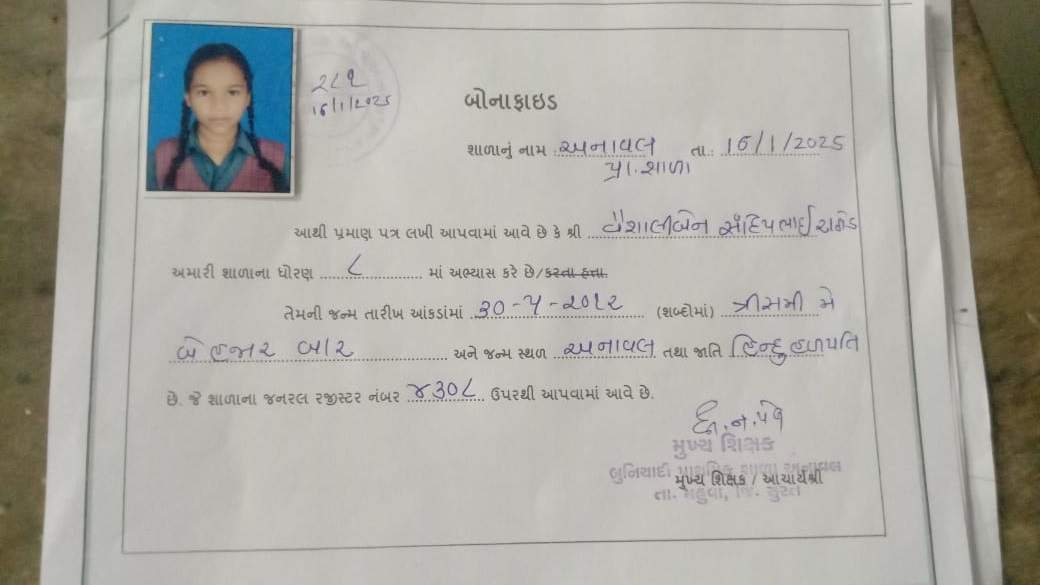 ૨૮૧
16/1/2025
બોનાફાઇડ
શાળાનું નામ : અનાવલ તા.: 16/1/2025
પ્રા. શાળા
આથી પ્રમાણ પત્ર લખી આપવામાં આવે છે કે શ્રી વૈશાલીબેન સંદિપભાઈ રાઠોડ
અમારી શાળાના ધોરણ ૮ માં અભ્યાસ કરે છે/કરતા હતા.
તેમની જન્મ તારીખ આંકડાંમાં ૩૦-૫-૨૦૧૨ (શબ્દોમાં) ત્રીસમી મે
બે હજાર બાર અને જન્મ સ્થળ અનાવલ તથા જાતિ હિન્દુ હળપતિ
છે. જે શાળાના જનરલ રજીસ્ટર નંબર ૪૩૦૮ ઉપરથી આપવામાં આવે છે.
મુખ્ય શિક્ષક
બુનિયાદી પ્રાથમિક શાળા અનાવલ
મુખ્ય શિક્ષક / આચાર્યશ્રી
તા. મહુવા, જિ. સુરત